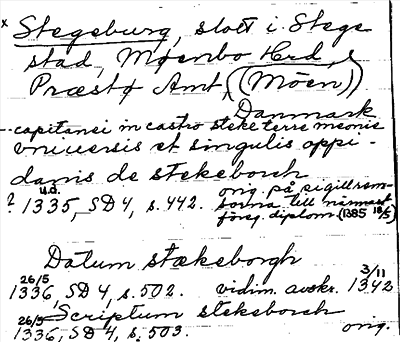 x Stegeburg, slott i Stege
stad, Møenbo Hrd,
Præstø Amt, (Möen)
Danmark
capitanei in castro steke terre meonis
vniuersis et singulis oppi-
danis de stekeborch
u.d. orig. på sigillrem-
? 1335, SD 4, s. 442. sorna till närmast
föreg. diplom (1335 18/5)
Datum stækeborgh
26/5 3/11
1336, SD 4, s. 502. vidim. avskr. 1342
Scriptum stekeborch
26/5
1336, SD 4, s. 503. orig.